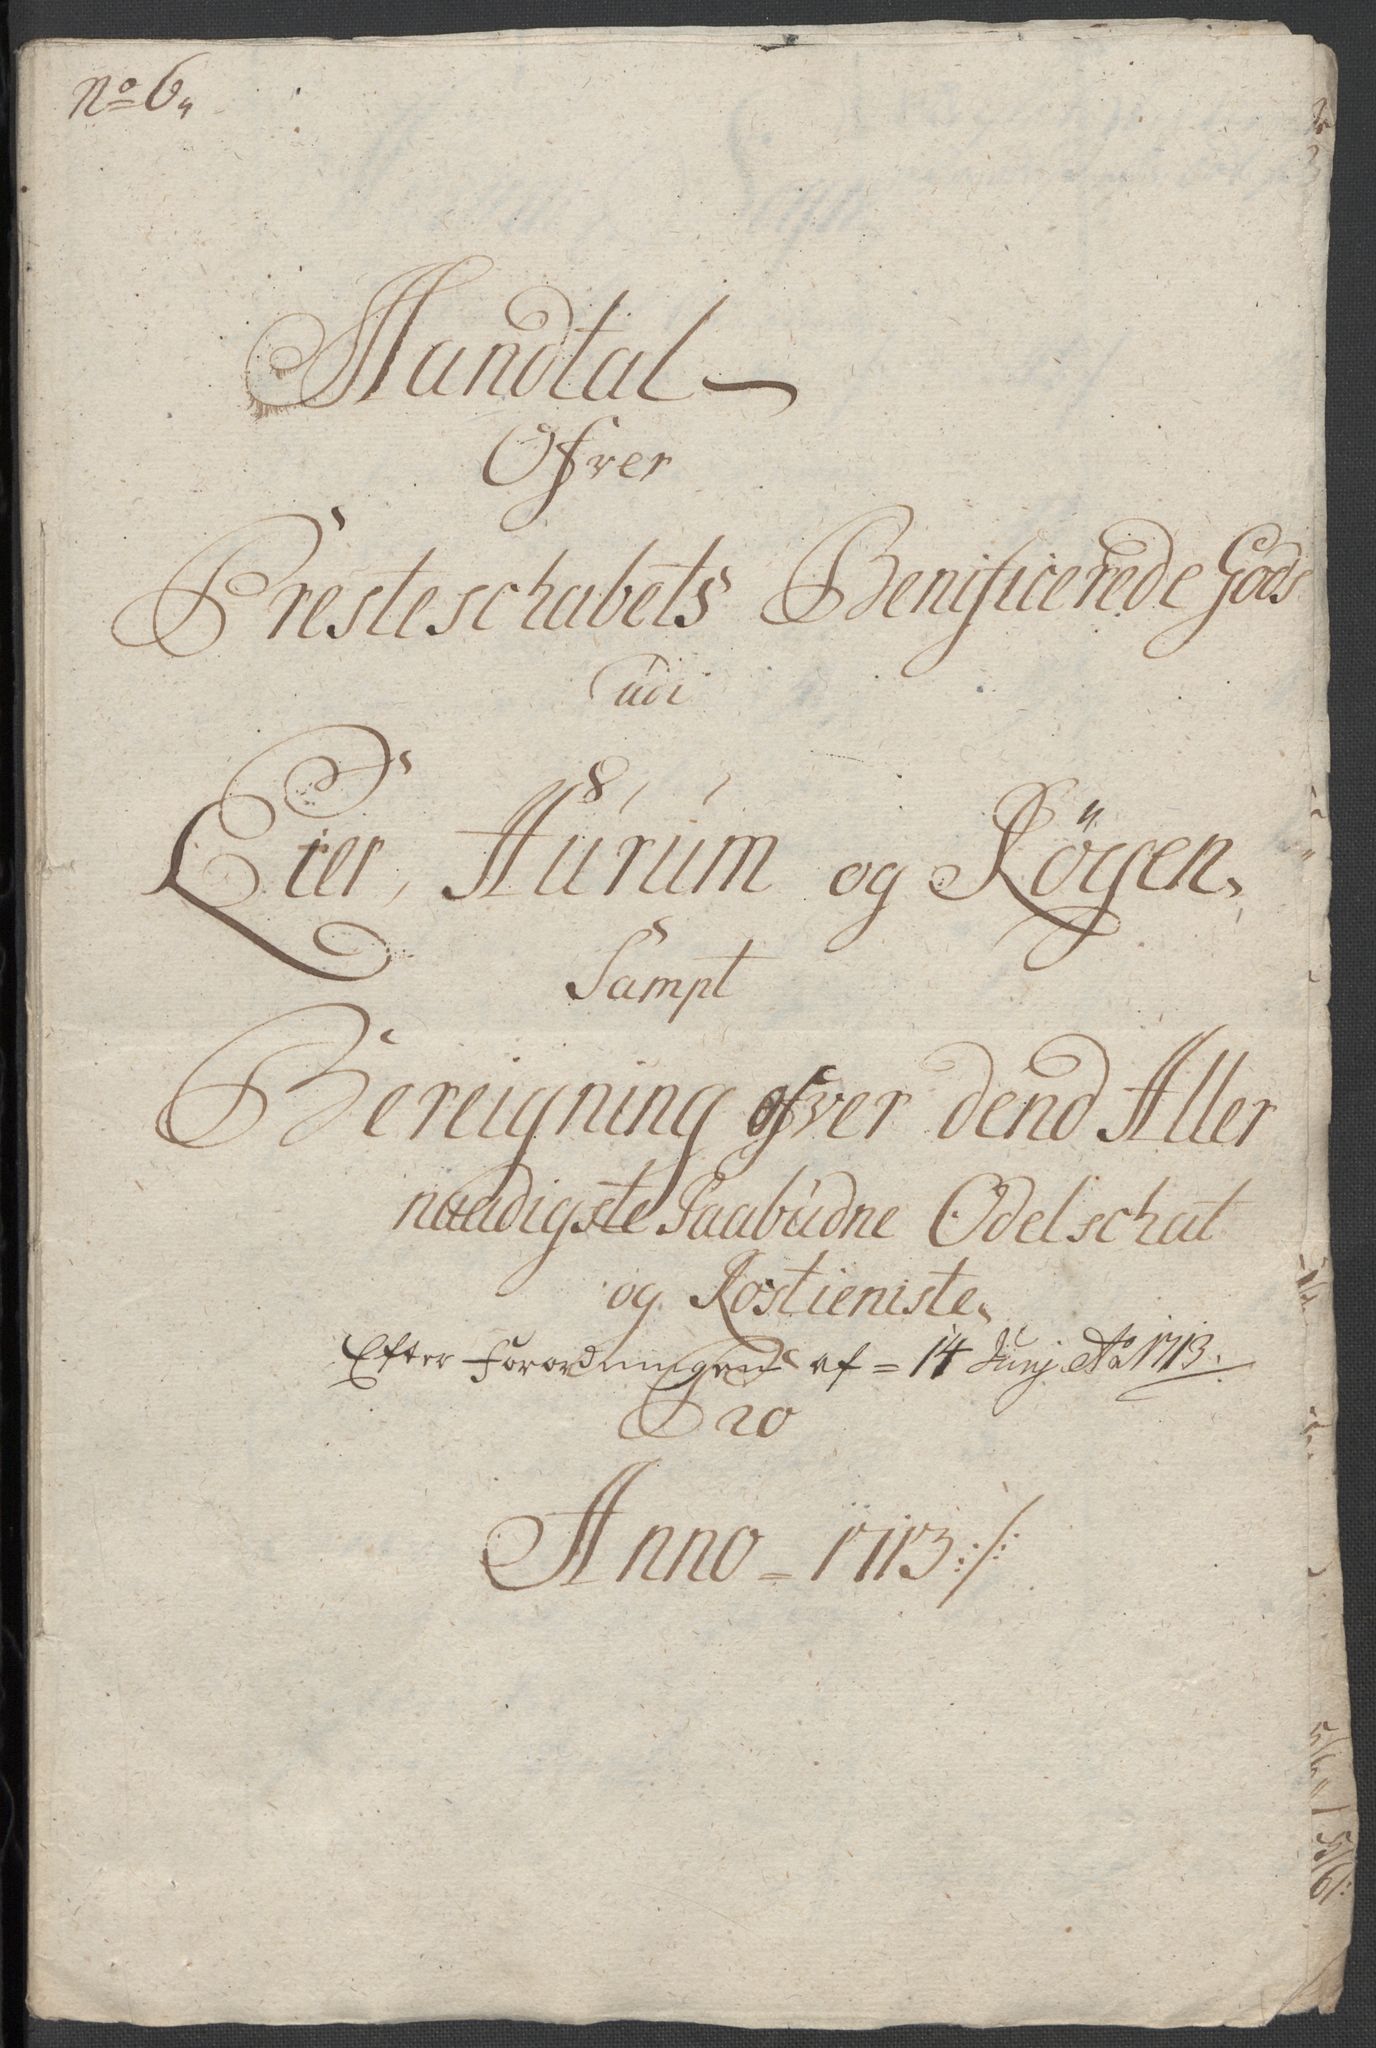 No 6,
Mandtal
Ofver
Presteschabets Benificerede Gods
udi
Eier, Hürüm og Rögen,
Sampt
Bereigning ofver dend Aller
naadigste Paabüdne Odelschat
og Rostieniste,
Efter Forordningens af = 14 Junj Ao 1713.
Pro
Anno = 1713:/: